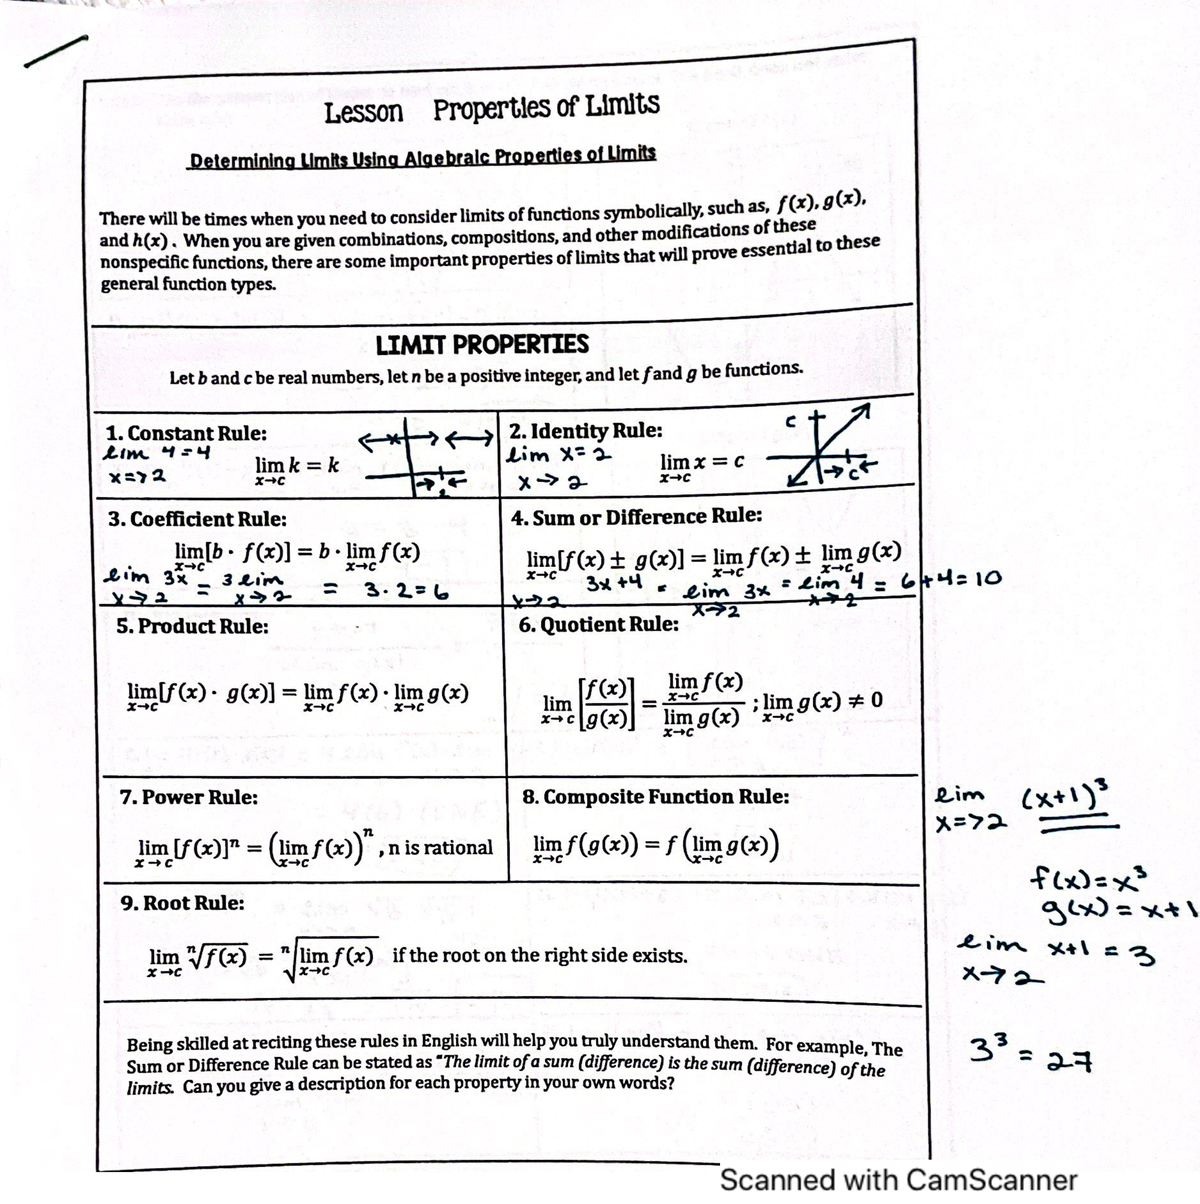 Lesson Properties of Limits
Determining Limits Using Algebraic Properties of Limits
There will be times when you need to consider limits of functions symbolically, such as, f(x), g(x),
and h(x). When you are given combinations, compositions, and other modifications of these
nonspecific functions, there are some important properties of limits that will prove essential to these
general function types.
LIMIT PROPERTIES
Let b and c be real numbers, let n be a positive integer, and let f and g be functions.
1. Constant Rule:
lim 4=4
x=>2
lim k = k
x→c
2
2. Identity Rule:
lim x=2
x→2
lim x = c
x→c
c
c
3. Coefficient Rule:
lim[b · f(x)] = b · lim f(x)
x→c x→c
lim 3x = 3 lim = 3·2=6
x→2 x→2
4. Sum or Difference Rule:
lim[f(x) ± g(x)] = lim f(x) ± lim g(x)
x→c x→c x→c
3x+4 = lim 3x = lim 4 = 6+4=10
x→2 x→2 x→2
5. Product Rule:
lim[f(x) · g(x)] = lim f(x) · lim g(x)
x→c x→c x→c
6. Quotient Rule:
lim [f(x)/g(x)] = lim f(x) / lim g(x) ; lim g(x) ≠ 0
x→c x→c x→c x→c
7. Power Rule:
lim [f(x)]ⁿ = (lim f(x))ⁿ, n is rational
x→c x→c
8. Composite Function Rule:
lim f(g(x)) = f(lim g(x))
x→c x→c
lim (x+1)³
x=>2
f(x)=x³
g(x)=x+1
lim x+1 = 3
x→2
3³ = 27
9. Root Rule:
lim ⁿ√f(x) = ⁿ√lim f(x) if the root on the right side exists.
x→c x→c
Being skilled at reciting these rules in English will help you truly understand them. For example, The
Sum or Difference Rule can be stated as "The limit of a sum (difference) is the sum (difference) of the
limits. Can you give a description for each property in your own words?
Scanned with CamScanner